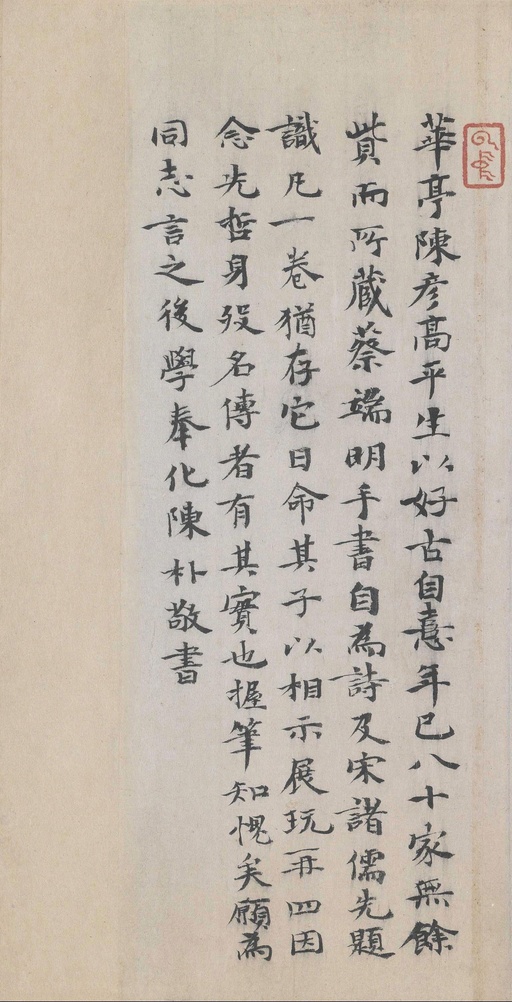 華亭陳彦高平生以好古自憙年已八十家無餘
貲而所藏蔡端明手書自為詩及宋諸儒先題
識凡一卷猶存它日命其子以相示展玩再四因
念先哲身歿名傳者有其實也握筆知愧矣願為
同志言之後學奉化陳朴敬書